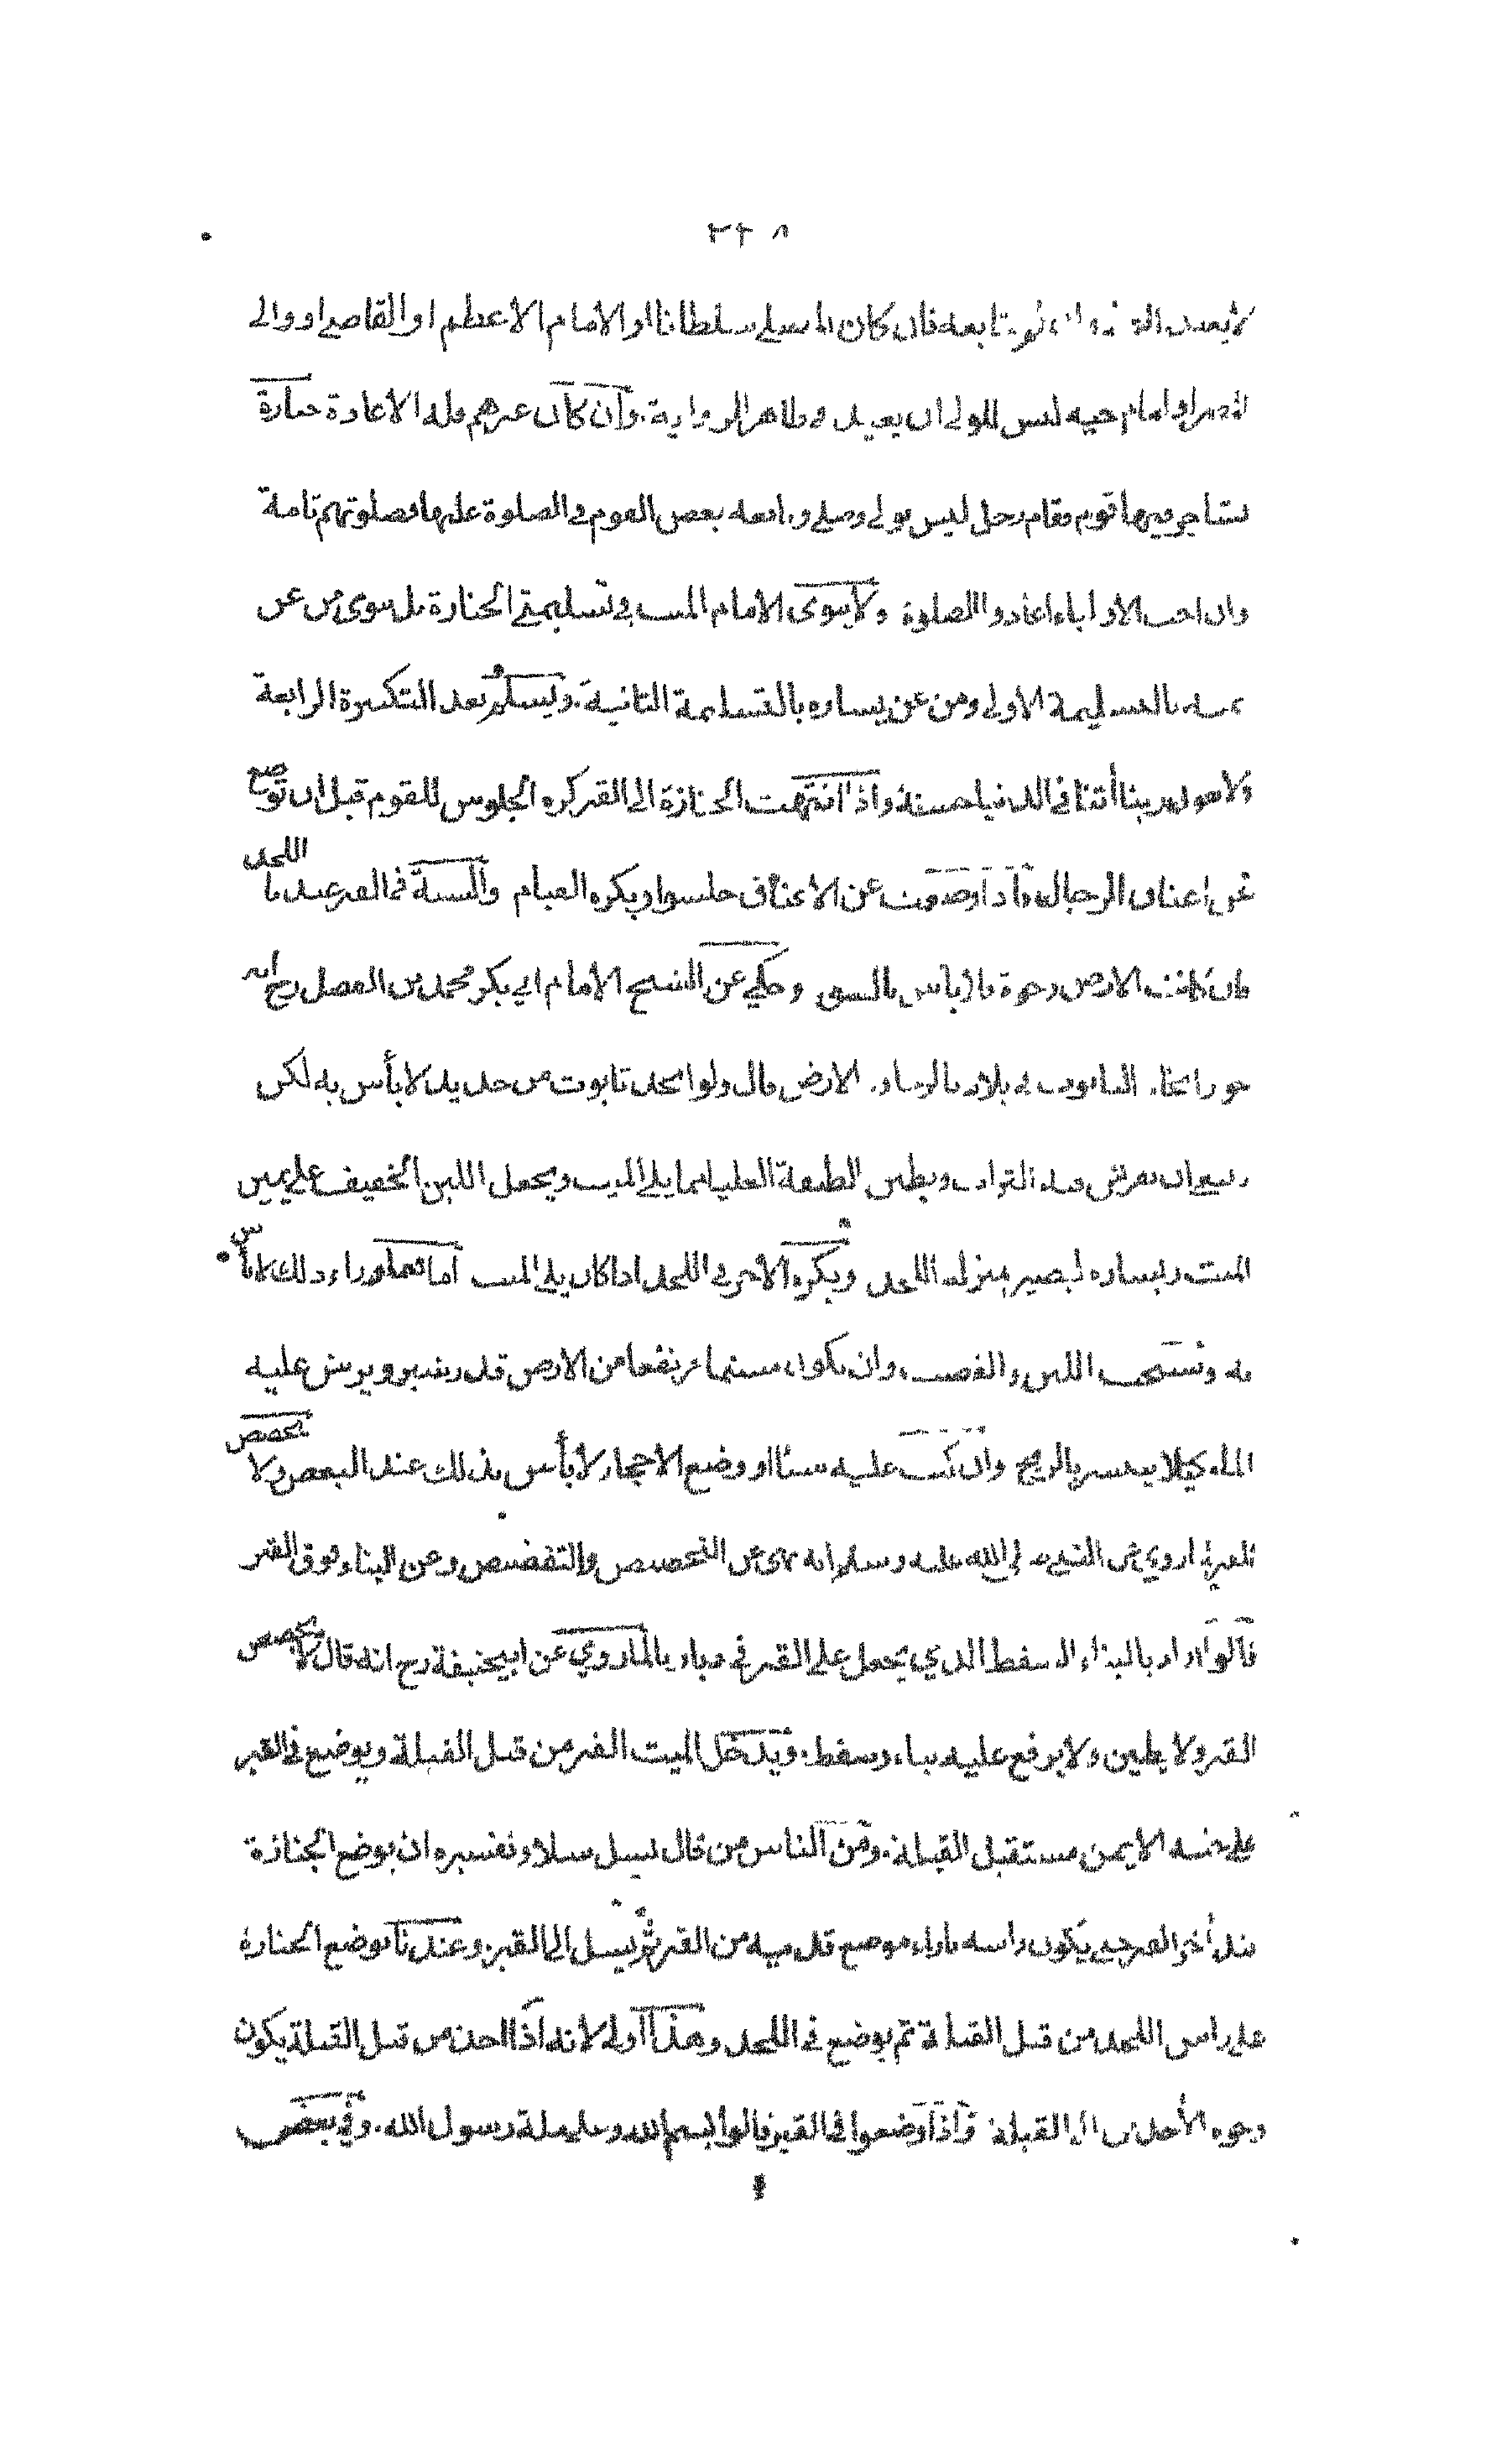 ٢٢٨
تابعه فان كان المصلي سلطانا او الامام الاعظم او القاضي او والي
او امام حيه ليس للولي ان يعيد في ظاهر الرواية. وان كان غيرهم فله الاعادة جنازة
تشاجر فيها قوم فقام رجل ليس بولي وصلى وتابعه بعض القوم في الصلوة عليها فصلوتهم تامة
وان احب الاولياء اعادوا الصلوة ولا ينوي الامام الميت في تسليمتي الجنازة بل ينوي من عن
يمينه بالتسليمة الاولى ومن عن يساره بالتسليمة الثانية. ويسلم بعد التكبيرة الرابعة
ولا يقول ربنا أتنا في الدنيا حسنة واذا انتهت الجنازة الى القبر كره الجلوس للقوم قبل ان توضع
عن اعناق الرجال فاذا وضعوت عن الاعناق جلسوا ويكره القيام والسنة في القبر عندنا اللحد
فان كانت الارض رخوة فلا بأس بالشق وحكي عن الشيخ الامام ابي بكر محمد بن الفضل رح انه
جوز اتخاذ التابوت في بلادنا لرخاوة الارض قال ولو اتخذ تابوت من حديد لا بأس به لكن
ينبغي ان يفرش فيه التراب ويطين الطبقة العليا مما يلي الميت ويجعل اللبن الخفيف على يمين
الميت ويساره ليصير بمنزلة اللحد ويكره الأجر في اللحد اذا كان يلي الميت اما فيما وراء ذلك لا بأس
به ويستحب اللبن والقصب وان يكون مسنما مرتفعا من الارض قدر شبر ويرش عليه
الماء كيلا ينتشر بالريح وان كتب عليه شيئا او وضع الاحجار لا بأس بذلك عند البعض ولا يجصص
القبر لما روي عن النبي صلى الله عليه وسلم انه نهى عن التجصيص والتفضيض وعن البناء فوق القبر
قالوا اراد بالبناء السفط الذي يجعل على القبر في ديارنا لما روي عن ابيحنيفة رح انه قال لا يجصص
القبر ولا يطين ولا يرفع عليه بناء وسفط. ويدخل الميت القبر من قبل القبلة ويوضع في القبر
على جنبه الايمن مستقبل القبلة. ومن الناس من قال يسل سلا وتفسيره ان يوضع الجنازة
عند أخر القبر حتى يكون راسه بازاء موضع قدميه من القبر ثم يسل الى القبر وعندنا توضع الجنازة
على راس اللحد من قبل القبلة ثم يوضع في اللحد وهذا اولى لانه اذا اخذ من قبل القبلة يكون
وجوه الأخذين الى القبلة واذا وضعوا في القبر قالوا بسم الله وعلى ملة رسول الله. وفي بعض